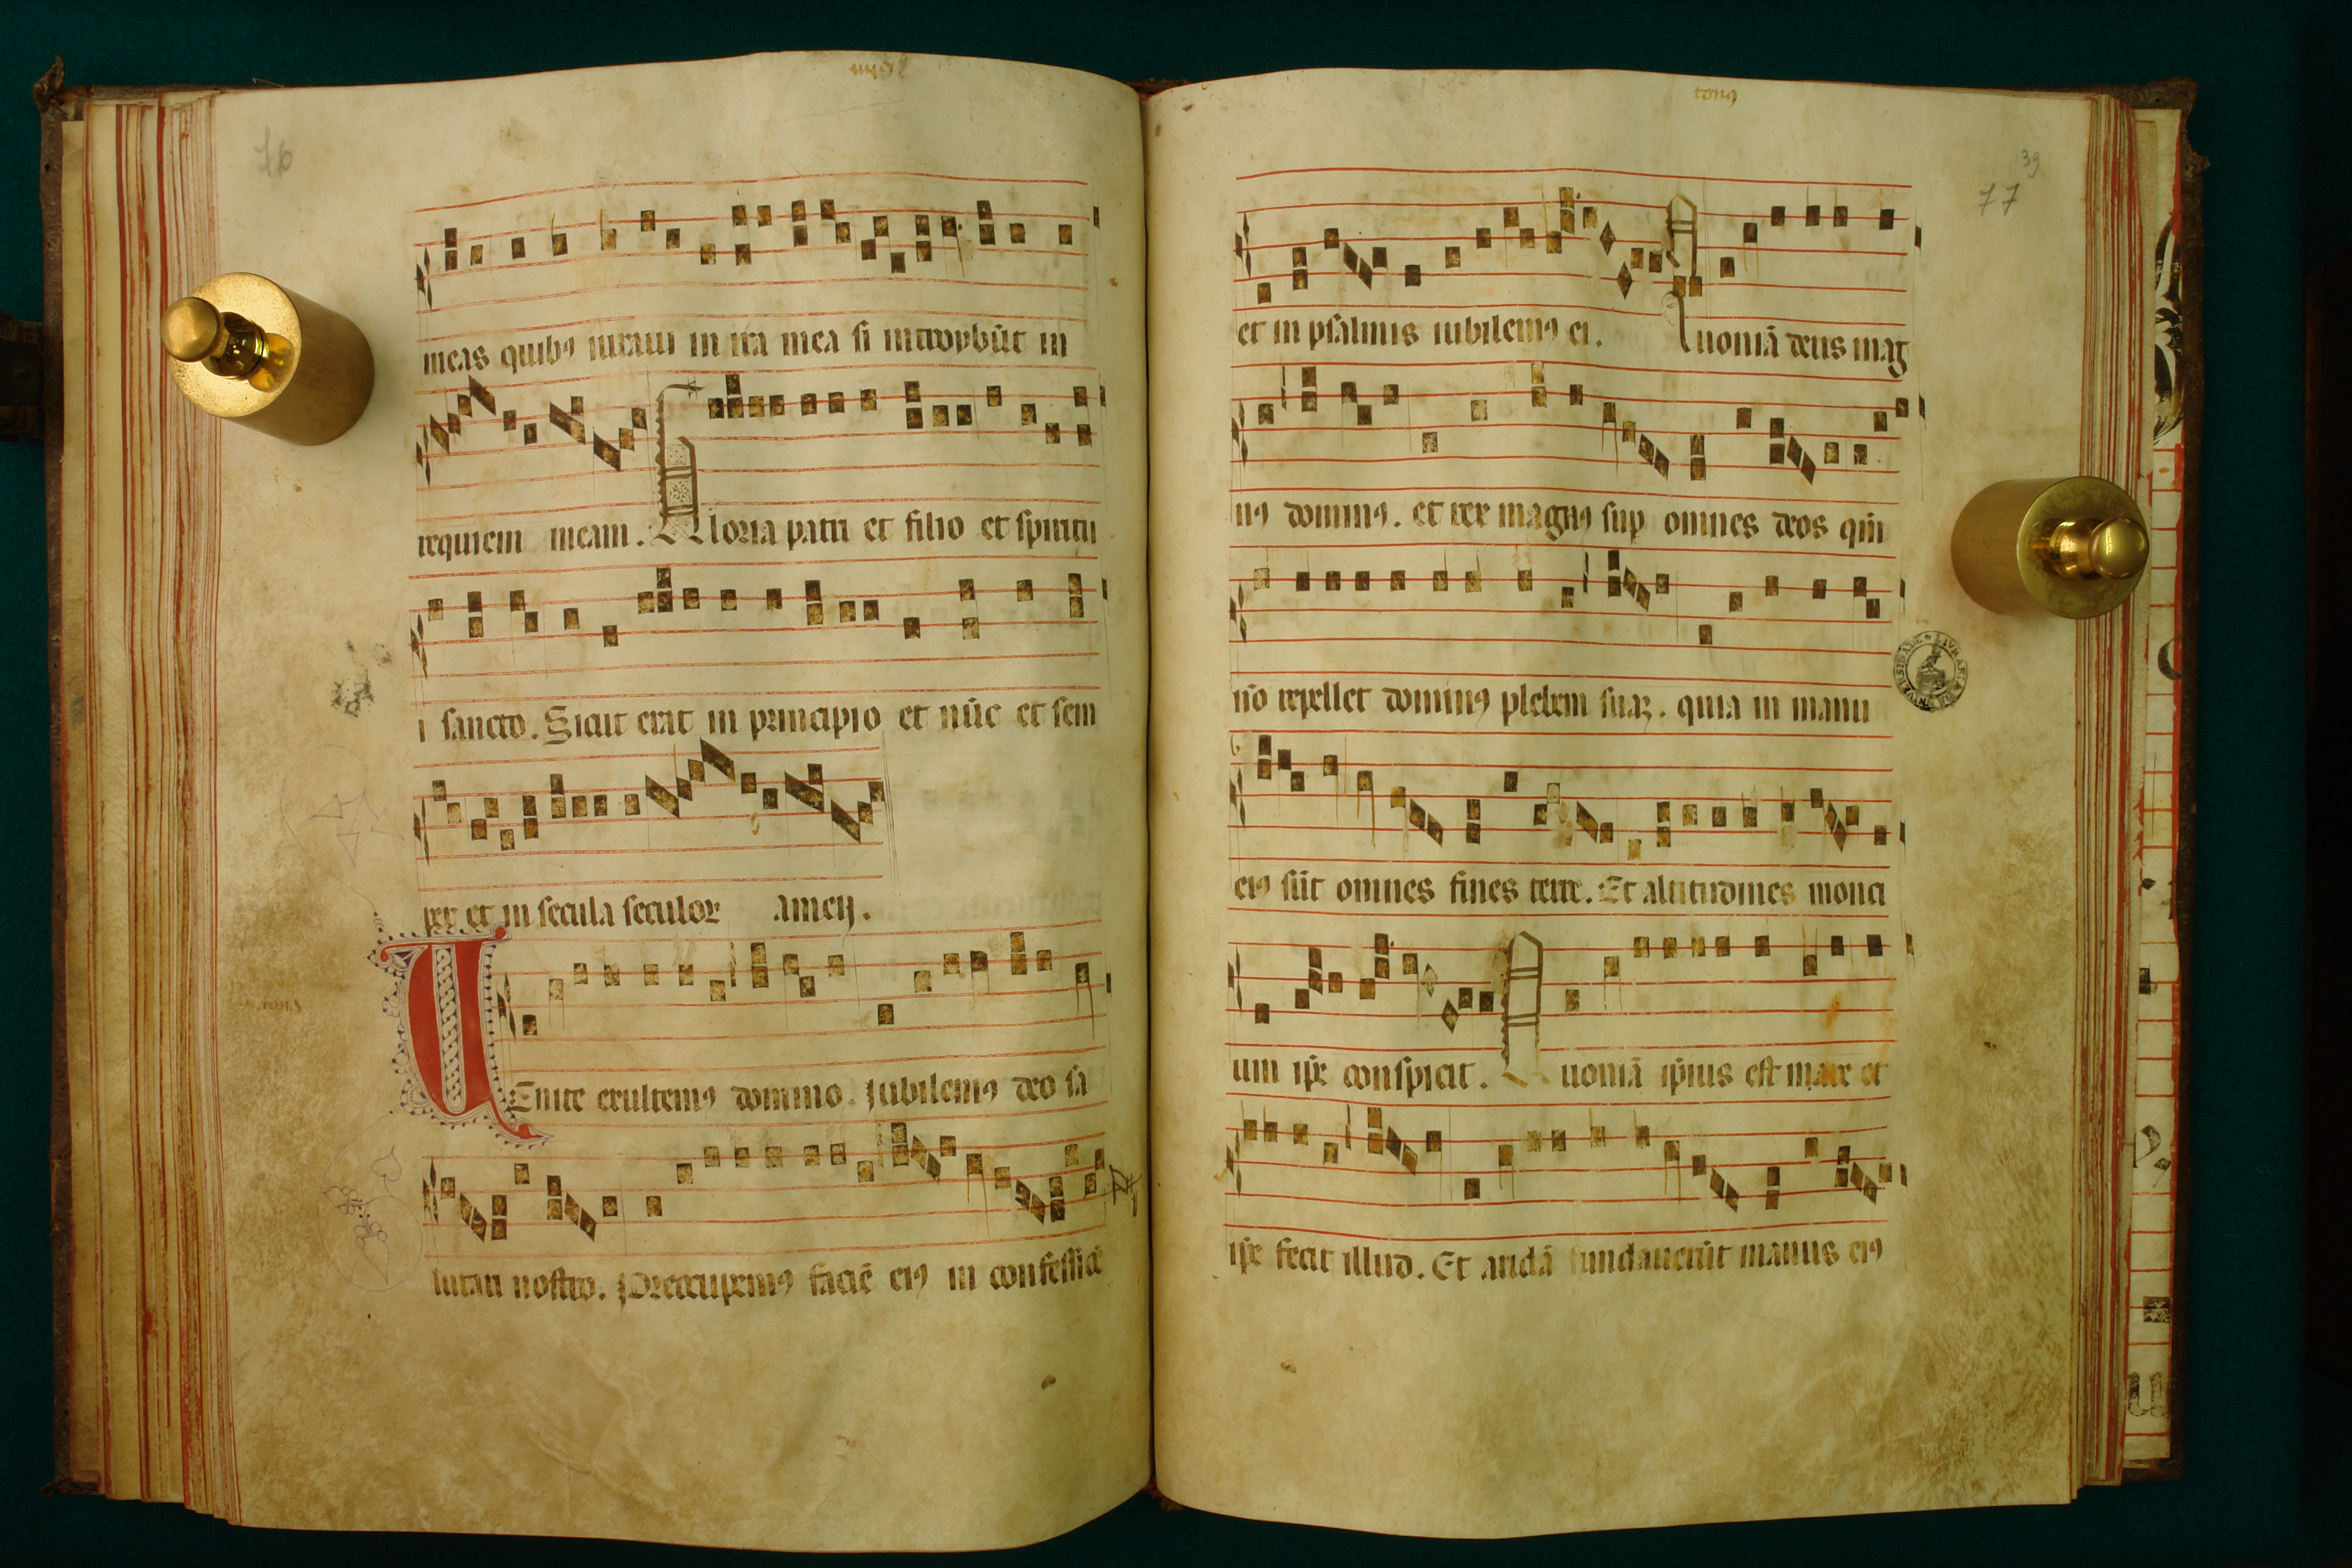 76
meas quibꝰ iuraui in ira mea si introybūt in
requiem meam. Gloria patri et filio et spiritu
i sancto. Sicut erat in principio et nūc et sem
per et in secula seculoꝝ amen.
UEnite exultemꝰ domino. Jubilemꝰ deo sa
lutari nostro. Preocupemꝰ faciē eiꝰ in confessiōe
tonꝰ
39
77
et in psalmis iubilemꝰ ei. Quoniā deus mag
nꝰ dominꝰ. et rex magnꝰ sup omnes deos qm̄
nō repellet dominꝰ plebem suaꝫ. quia in manu
eiꝰ sūt omnes fines terre. Et altitudines monti
um ip̄e conspicit. Quoniā ip̄ius est mare et
ip̄e fecit illud. Et aridā fundauerūt manus eiꝰ